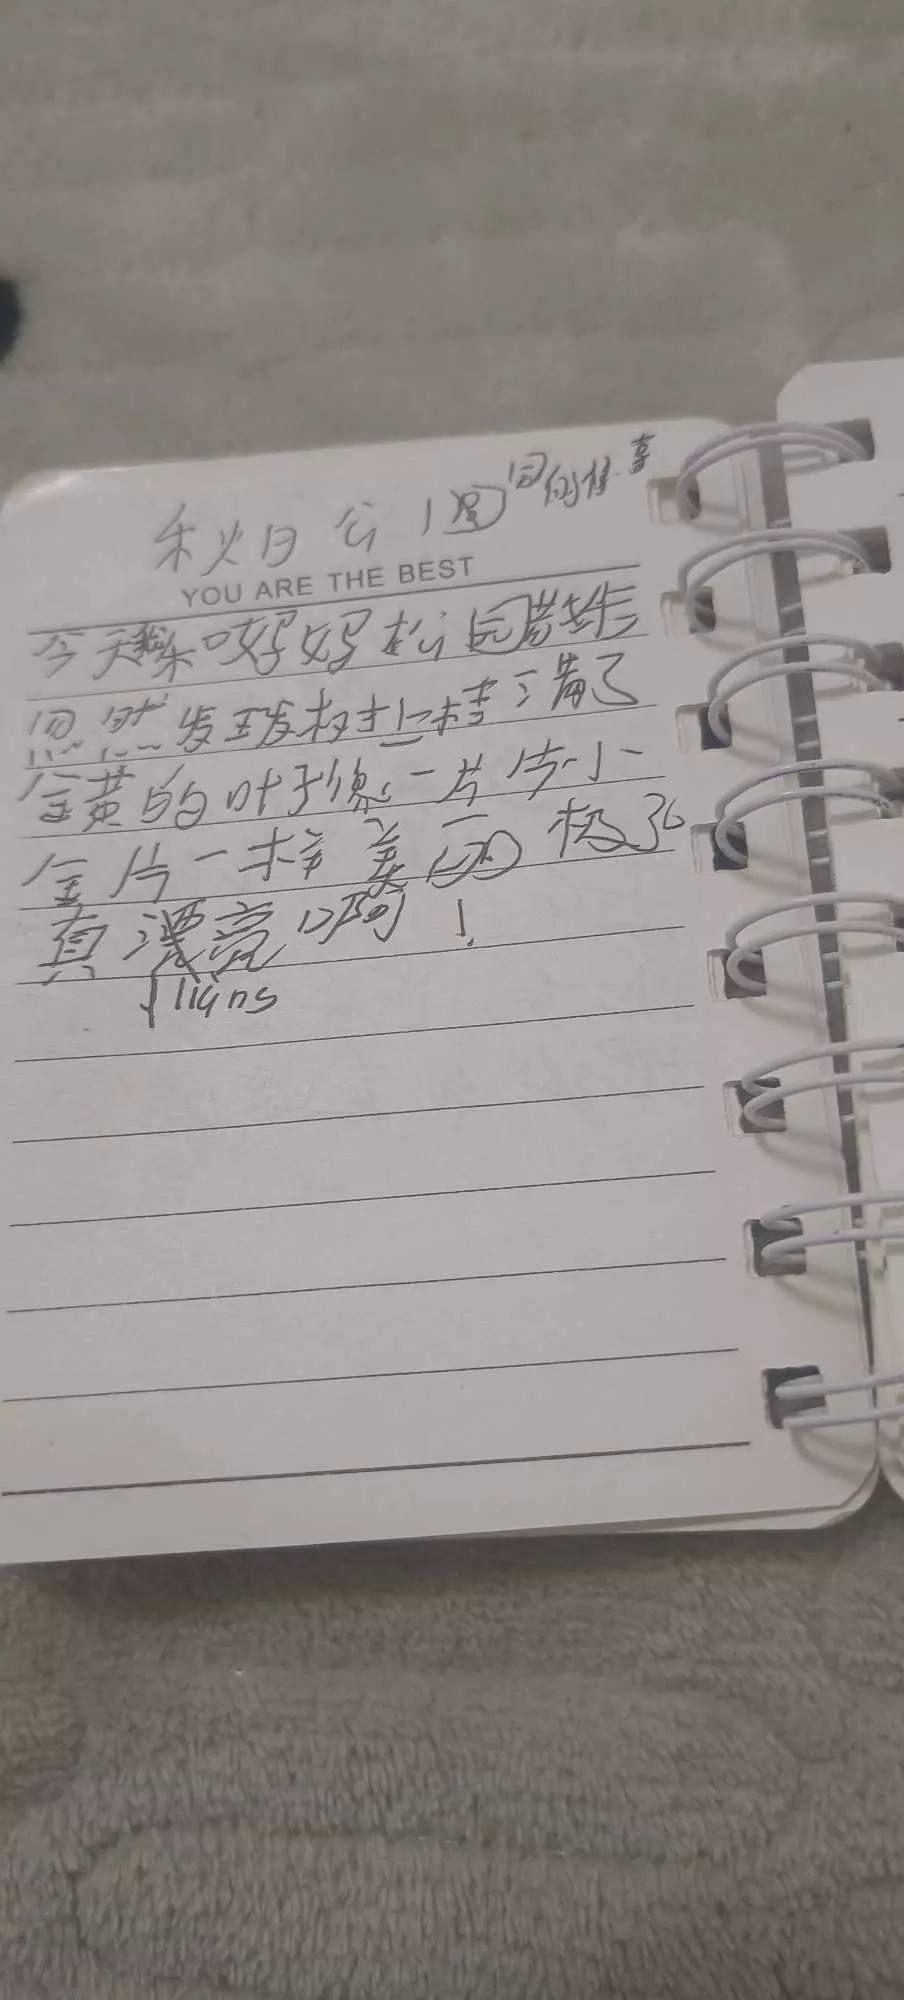 秋日公园
YOU ARE THE BEST
今天 和妈妈松园散
忽然发现树上挂满了
金黄的叶子像一片片小
金片一样美丽极了
真漂亮啊！